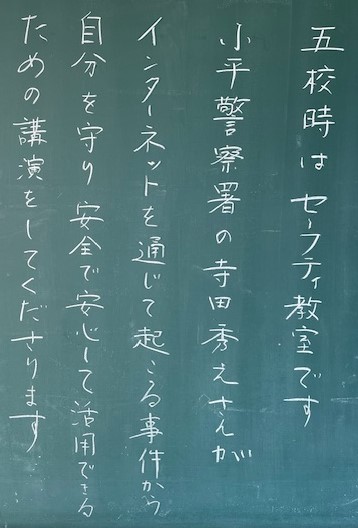 五校時はセーフティ教室です
小平警察署の寺田秀えさんが
インターネットを通じて起こる事件から
自分を守り安全で安心して活用できる
ための講演をしてくださります